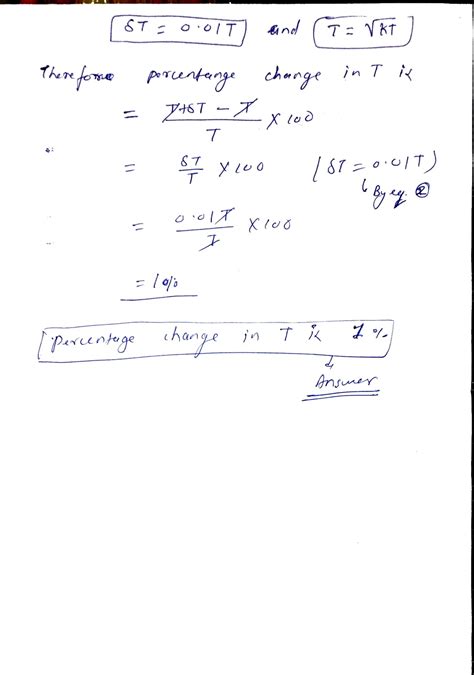 δT = 0.01T and T = √KT
Therefore percentange change in T is
= T+δT - T / T × 100
= δT / T × 100 (δT = 0.01T)
↳ By eq. ②
= 0.01T / T × 100
= 1%
Percentage change in T is 1%.
↳ Answer